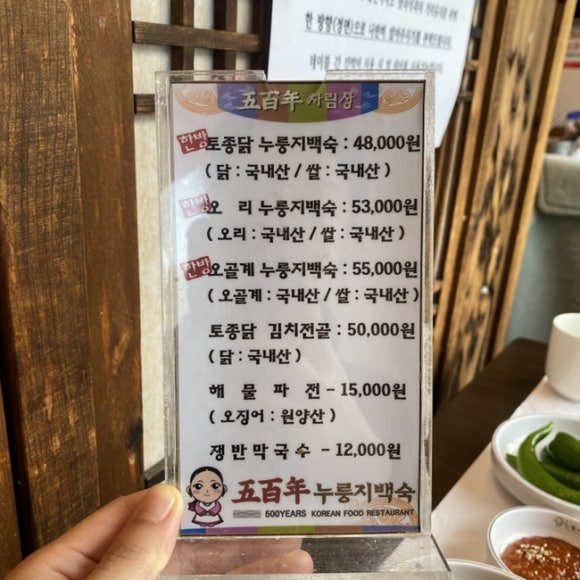 한 방향(정면)으로
五百年 차림상
한방 토종닭 누룽지백숙 : 48,000원
( 닭 : 국내산 / 쌀 : 국내산 )
한방 오 리 누룽지백숙 : 53,000원
( 오리 : 국내산 / 쌀 : 국내산 )
한방 오골계 누룽지백숙 : 55,000원
( 오골계 : 국내산 / 쌀 : 국내산 )
토종닭 김치전골 : 50,000원
( 닭 : 국내산 )
해 물 파 전 - 15,000원
( 오징어 : 원양산 )
쟁반막국수 - 12,000원
五百年 누룽지백숙
500YEARS KOREAN FOOD RESTAURANT